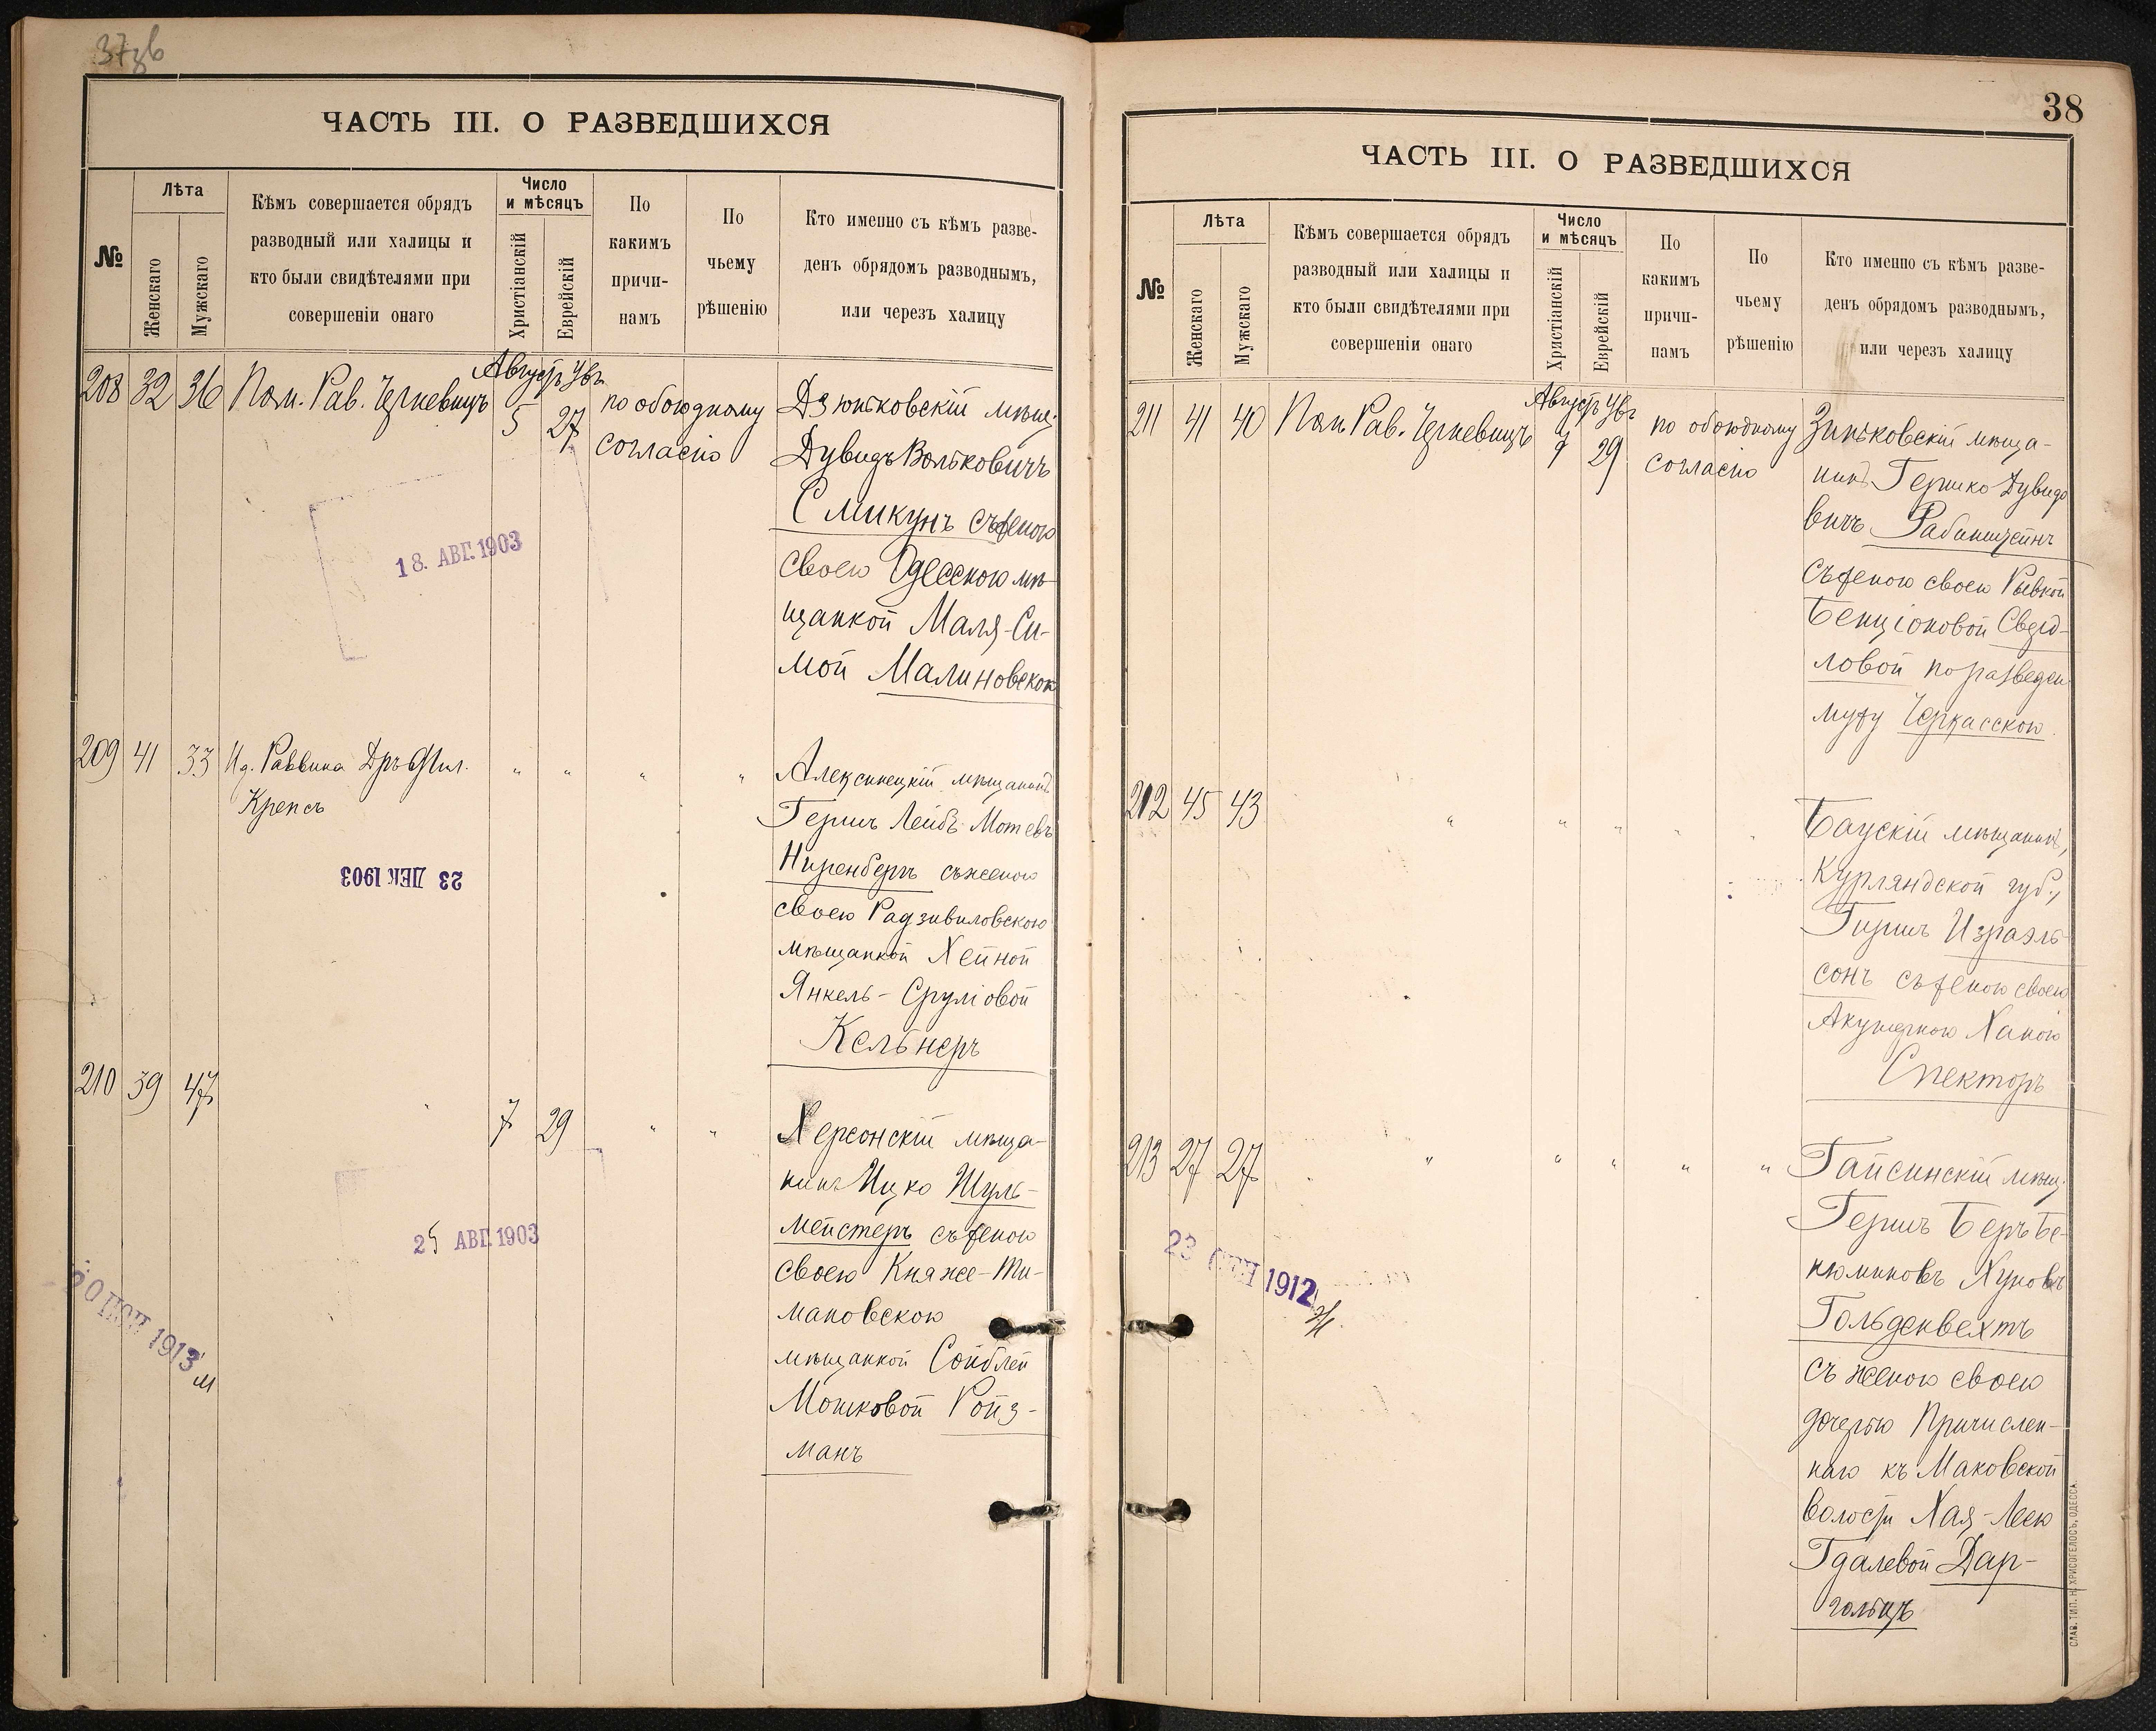 37зв
ЧАСТЬ III. О РАЗВЕДШИХСЯ
№
Лѣта
Женскаго
Мужскаго
Кѣмъ совершается обрядъ
разводный или халицы и
кто были свидѣтелями при
совершеніи онаго
Число
и мѣсяцъ
Христіанскій
Еврейскій
По
какимъ
причи-
намъ
По
чьему
рѣшенію
Кто именно съ кѣмъ разве-
денъ обрядомъ разводнымъ,
или черезъ халицу
208 32 36 Пом. Рав. Черневицъ
Августъ
5 27
по обоюдному
согласію
Дзюньковскій мѣщ.
Дувидъ Вольковичъ
Смикунъ съ женою
своею Одесскою мѣ-
щанкой Маля-Си-
мой Малиновской
18. АВГ. 1903
209 41 33 И д. Раввина Дръ Фил.
Крепсъ
" " " "
Алексинецкій мѣщанинъ
Гершъ Лейбъ Мотевъ
Ниренбергъ съ женою
своею Радзивиловскою
мѣщанкой Хейной
Янкель-Сруліовой
Кельнеръ
23 ДЕК 1903
210 39 47
7 29 " "
Херсонскій мѣща-
нинъ Ицко Шуль-
мейстеръ съ женою
своею Княже-Ти-
мановскою
мѣщанкой Сойблей
Мошковой Ройз-
манъ
25 АВГ. 1903
1913
38
ЧАСТЬ III. О РАЗВЕДШИХСЯ
№
Лѣта
Женскаго
Мужскаго
Кѣмъ совершается обрядъ
разводный или халицы и
кто были свидѣтелями при
совершеніи онаго
Число
и мѣсяцъ
Христіанскій
Еврейскій
По
какимъ
причи-
намъ
По
чьему
рѣшенію
Кто именно съ кѣмъ разве-
денъ обрядомъ разводнымъ,
или черезъ халицу
211 41 40 Пом. Рав. Черневицъ
Августъ
7 29
по обоюдному
согласію
Зиньковскій мѣща-
нинъ Гершко Дувидо
вичъ Рабинштейнъ
съ женою своею Рывкой
Бенціоновой Сверд-
ловой по разведен.
мужу Черкасскою.
212 45 43
" " " " "
Баускій мѣщанинъ,
Курляндской губ.,
Гиршъ Израэль-
сонъ съ женою своею
Акушеркою Ханою
Спекторъ
213 27 27
" " " " "
Гайсинскій мѣщ.
Гершъ Беръ Бе-
нюминовъ Хуновъ
Гольденвехтъ
съ женою своею
дочерью Причислен-
наго къ Маковской
волости Хая-Леею
Гдалевой Дар-
гольцъ
23 СЕН 1912
СЛАВ. ТИП. Н. ХРИСОГЕЛОСЪ, ОДЕССА.